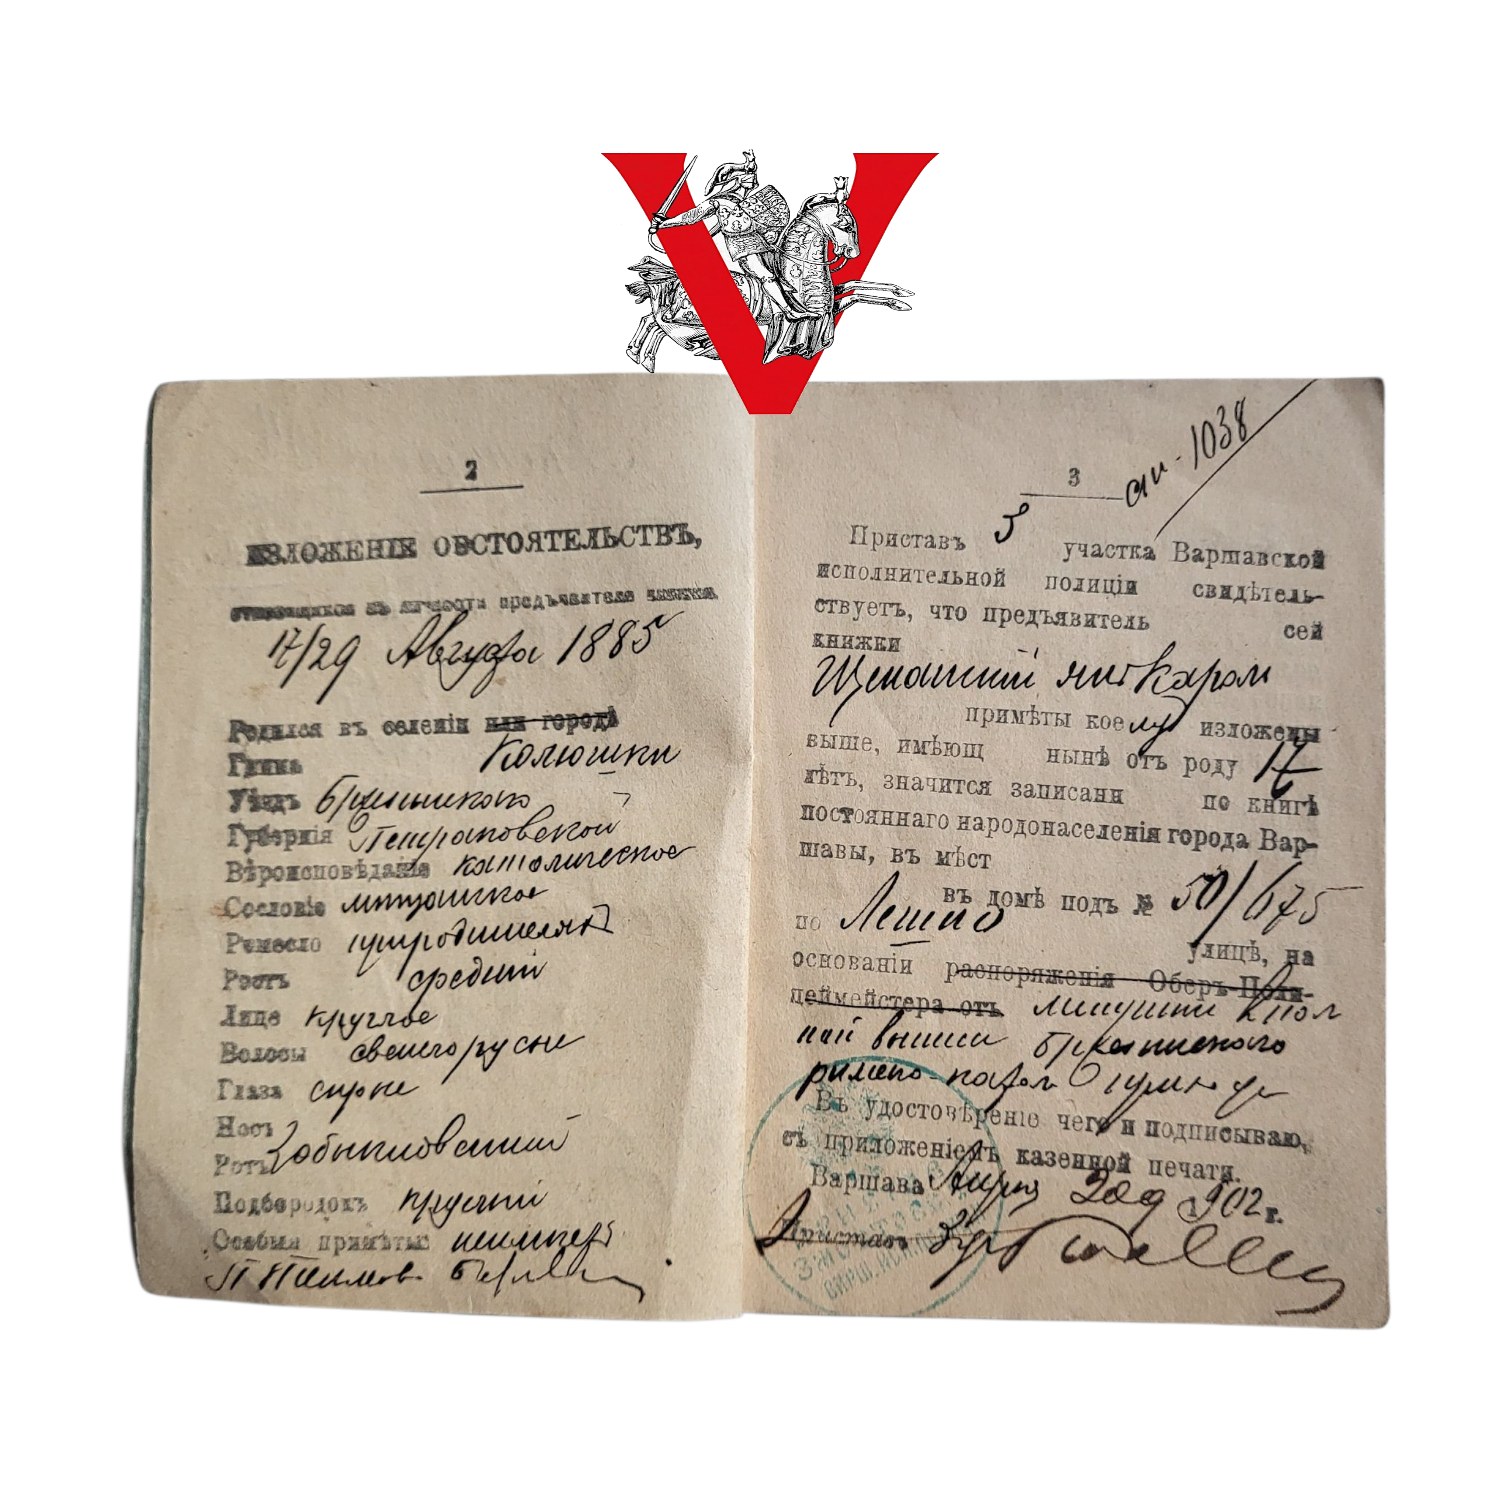 V
2
ИЗЛОЖЕНІЕ ОБСТОЯТЕЛЬСТВЪ,
относящихся къ личности предъявителя книжки.
17/29 Августа 1885
Родился въ селеніи или городѣ
Колюшки
Гмина
Уѣздъ Брезинскаго
Губернія Петраковской
Вѣроисповѣданіе католическое
Сословіе мѣщанское
Ремесло при родителяхъ
Ростъ средній
Лице круглое
Волосы свѣтлорусые
Глаза сѣрые
Носъ
Ротъ обыкновенный
Подбородокъ круглый
Особыя примѣты: неимѣетъ
3
1038
Приставъ 3 участка Варшавской
исполнительной полиціи свидѣтель-
ствуетъ, что предъявитель сей
книжки
Щепанскій Янъ Кароль
примѣты коему изложены
выше, имѣющ нынѣ отъ роду 17
лѣтъ, значится записанн по книгѣ
постояннаго народонаселенія города Вар-
шавы, въ мѣст
въ домѣ подъ № 50/675
по Лешно улицѣ, на
основаніи распоряженія Оберъ-Поли-
цеймейстера отъ метрики
выписи Брезинскаго
римско-катол
Въ удостовѣреніе чего и подписываю,
съ приложеніемъ казенной печати.
Варшава 20 д 1902 г.
Приставъ